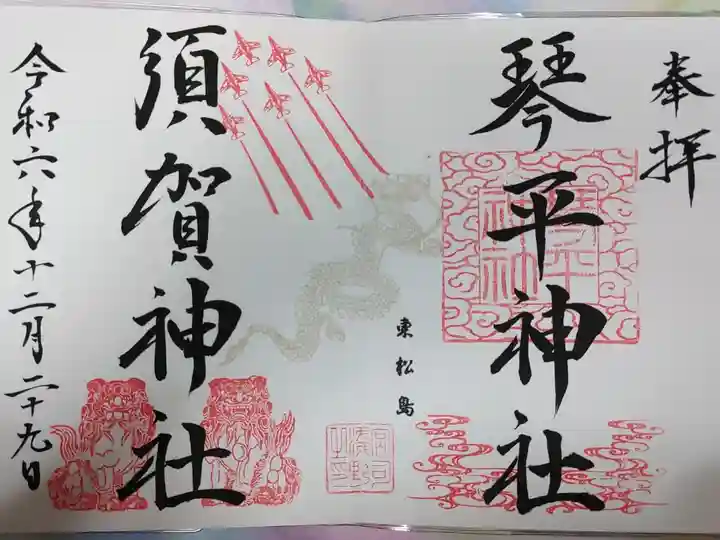 奉拝
琴平神社
琴平
神社
東松島
須賀神社
令和六年十二月二十九日